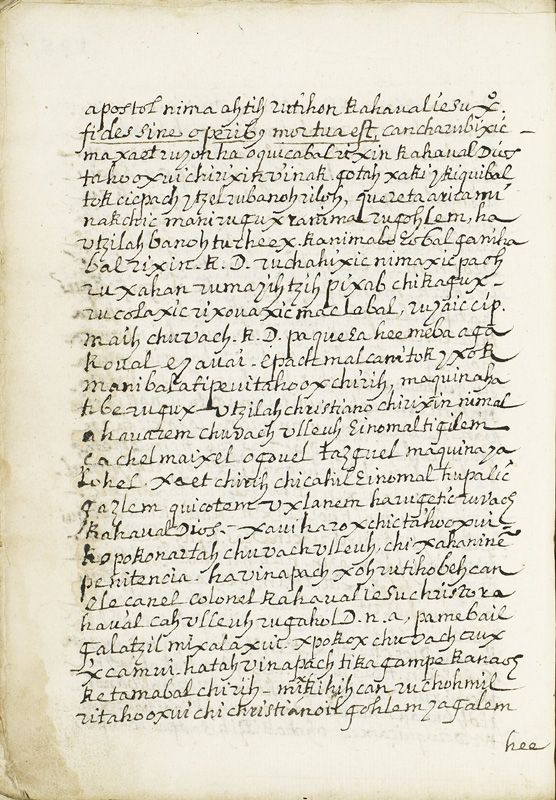 apostol nima ahtih rutihon kahaval iesu xº.
fides sine operibꝰ mortua est, cancharubixic
maxaet ruyon ha oquicabal rixin kahaval Dios
tahooxvi chirixin vinak gotah xaki ykiquibal
tok cicpach ytzel rubanoh riloh, quereta aritami
nakchic mani rugux ranimal rugohlem, ha
vtzilah banoh tucheex kanimabe
balrixin. k. D. ruchahixic nimaxic pach
ruxahan ruma yihtzih pixab chikagux
rucolaxic rixovaxic mac lebal, ruyaic cip.
maih chuvach. k. D. pa que hee meba aga
koval eyavai. epachmal canitok yxok
mani balatipevi tahoox chirih, maquinaha
tibe rugux vtzilah christiano chirixin nimal
ahavarem chuvach vlleuh Einomal tigilem
cachel maixel ogovel tazguel maquinaya
lohel. xaet chirih chicahil Einomal tupalic
gazlem quicotem vxlanem harugetic ruvach
kahaval Dios. xavi haroxchic tahooxvi
kopokonartah chuvach vlleuh, chi xahanine
penitencia. havinapach xohrutihobeh can
elecanel colonel kahaval iesu christo ra
haval cah vlleuh rugahol D. n. a, pamebail
galatzil mixalaxvic. xpokox chuvach crux
ixcamvi. hatah vinapach tikagampe kanaoh
ketamabal chirih mikihih can ruchohmil
ritahooxvi chi christianoil gohlem yagalem
hee